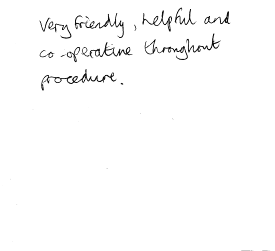 Very friendly, helpful and
co-operative throughout
procedure.